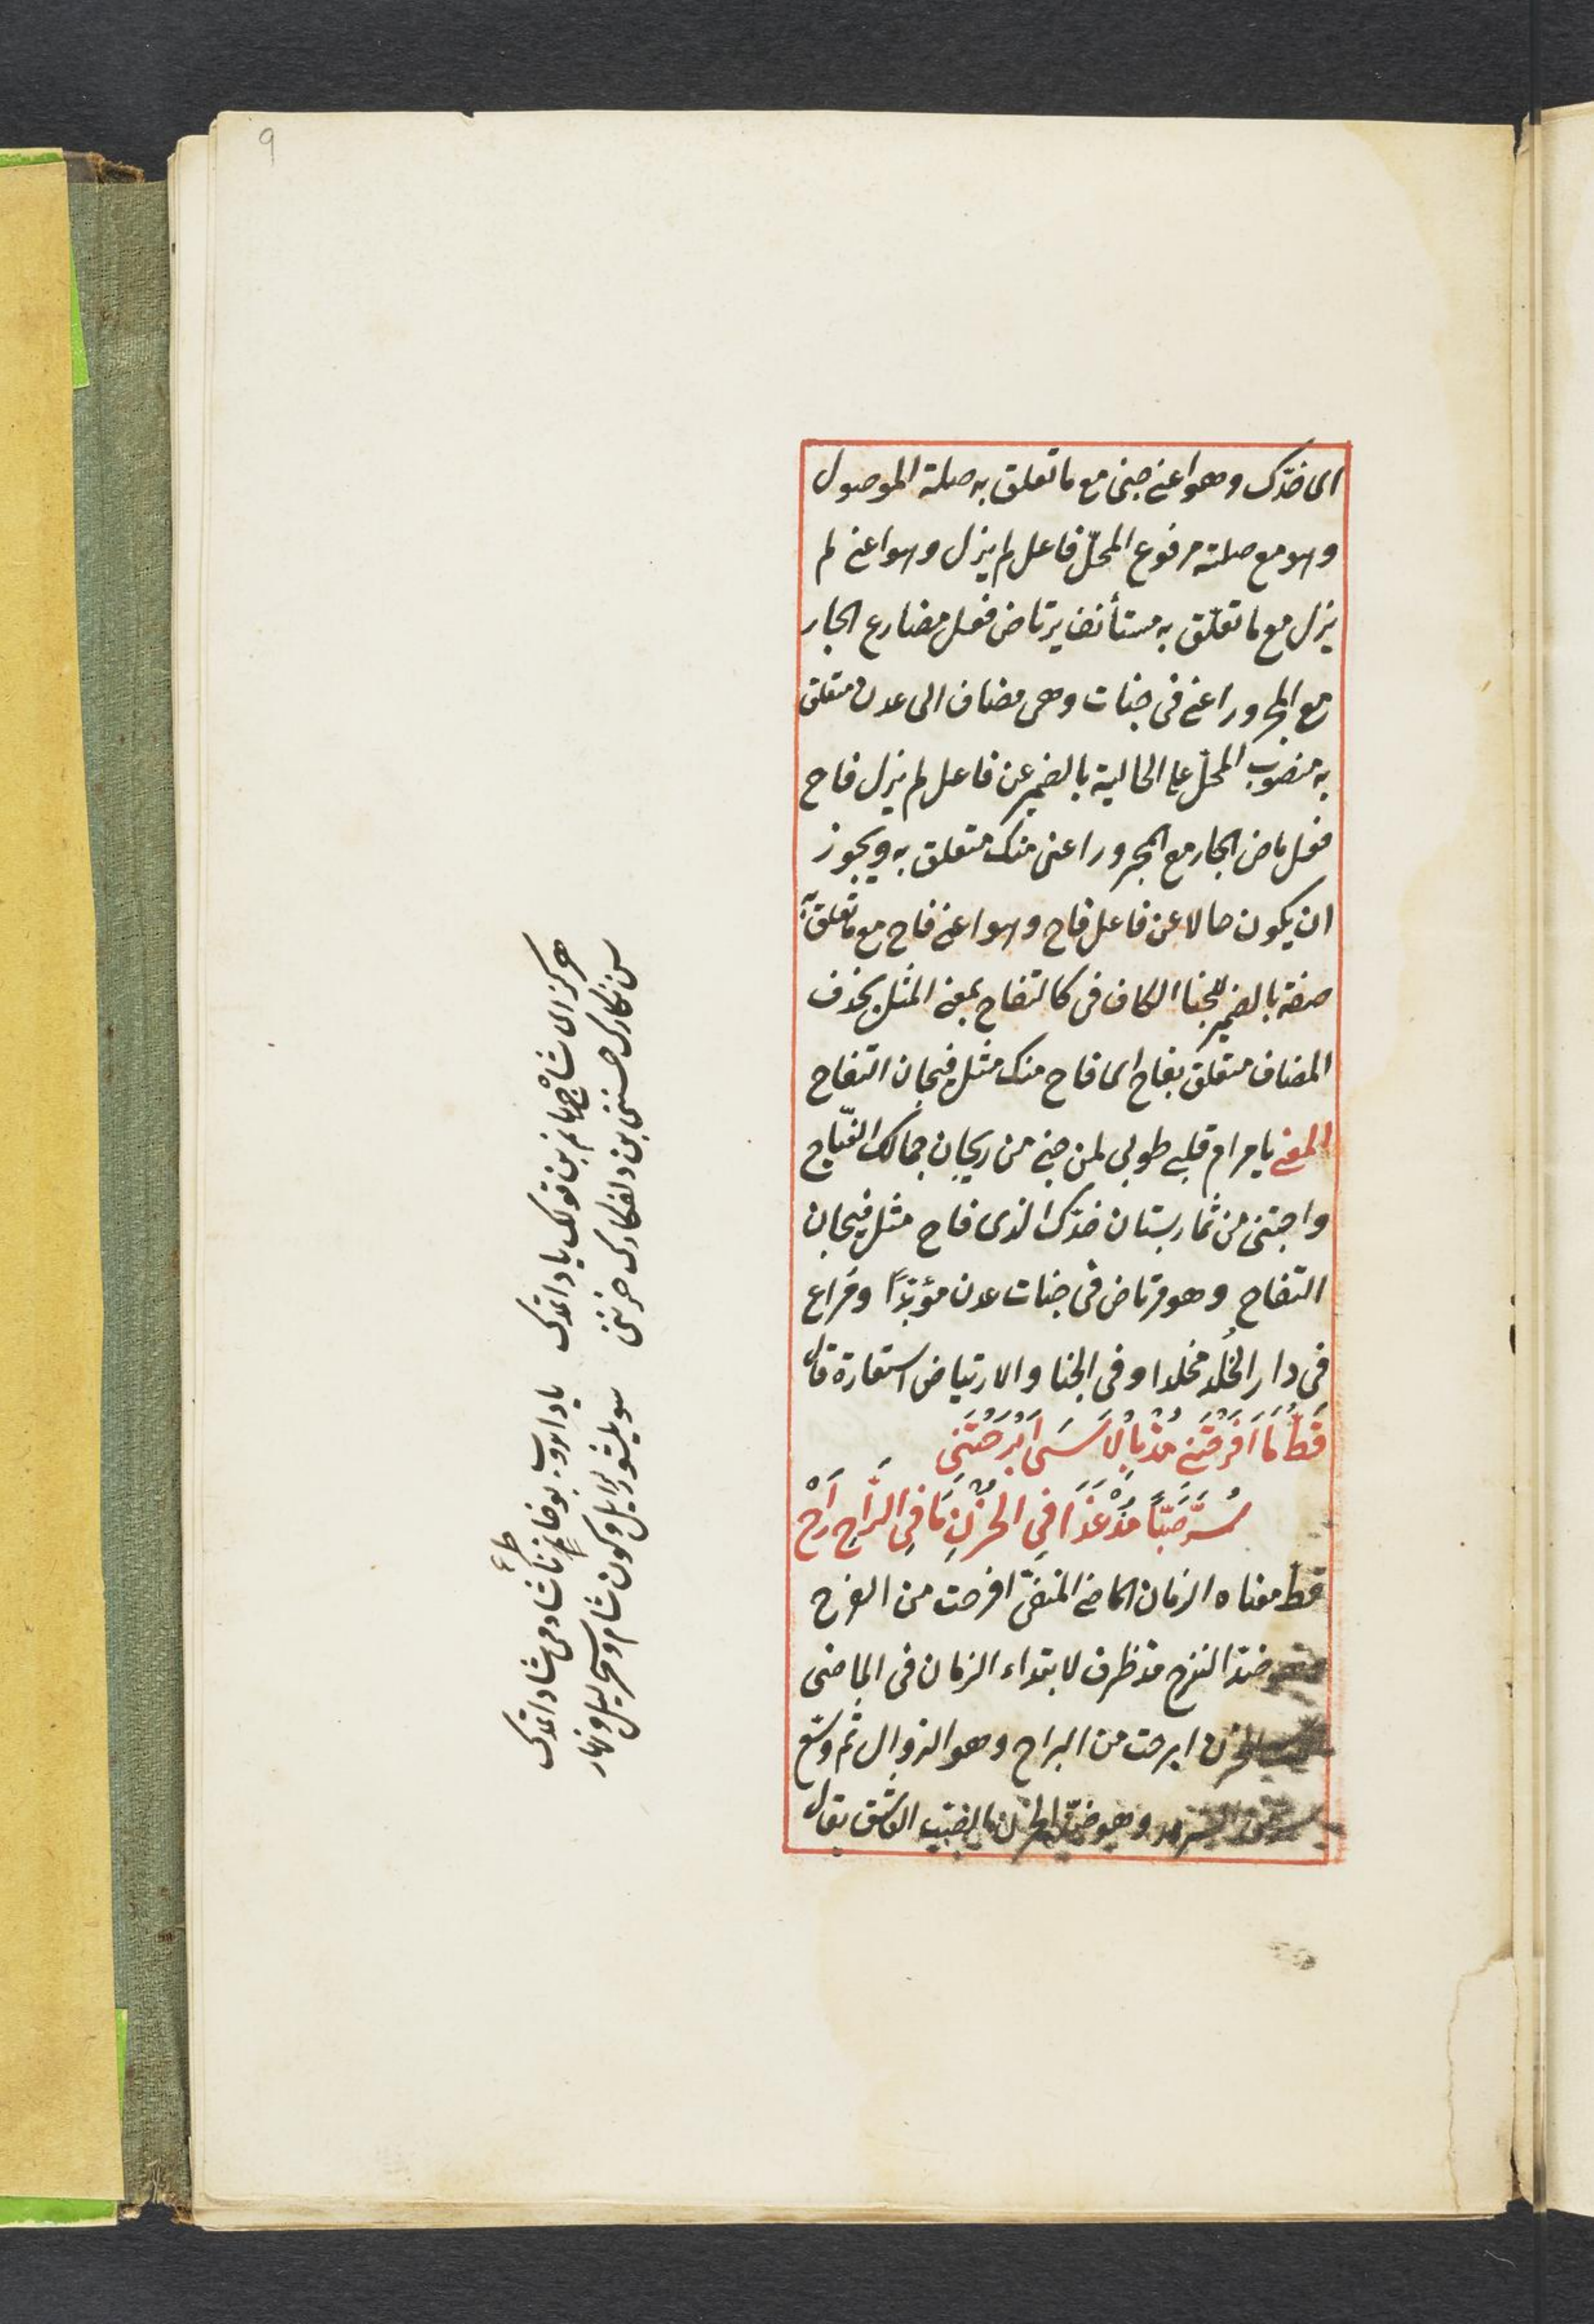 9
ای خدّک وهو اعنی جنی مع ما تعلق به صلة الموصول
وهو مع صلته مرفوع المحلّ فاعل لم یزل وهو اعنی لم
یزل مع ما تعلّق به مستأنف یرتاض فعل مضارع الجار
مع المجرور اعنی فی جنات وهی مضاف الی عدن متعلق
به منصوب المحلّ علی الحالیة بالضمیر عن فاعل لم یزل فاح
فعل ماض الجار مع المجرور اعنی منک متعلق به ویجوز
ان یکون حالا عن فاعل فاح وهو اعنی فاح مع ما تعلق به
صفة بالضمیر للجنا الکاف فی کالتفاح بمعنی المثل بحذف
المضاف متعلق بفاح ای فاح منک مثل فیحان التفاح
المعنی یا مرام قلبی طوبی لمن جنی من ریحان جمالک الفیّاح
واجتنی من ثمار بستان خدّک الذی فاح مثل فیحان
التفاح وهو مرتاض فی جنات عدن مؤبّدًا ومُراع
فی دار الخُلد مخلدا وفی الجنا والارتیاض استعارة قال
قَطُّ مَا اَفرَحْتَنِی مُذْ بِالاَسَی اَبْرَحْتَنِی
سُرَّ صَبًّا مُذْ غَدَا فِی الحُزْنِ مَا فِی الرَّاحِ رَاحْ
قط معناه الزمان الماضی المنفی افرحت من الفرح
ضد الترح مذ ظرف لابتداء الزمان فی الماضی
الحزن ابرحت من البراح وهو الزوال ثم وسّع
وهو ضدّ الحزن الصّب العاشق یقال
هرکز ای شاخ بنم بن قولک یاد اتمدک
یاد ایدوب بو خاطر ناشادمی شاد اتمدک
سن نکارک حسننی بن دلفکارک حزننی
سویلشورلر ایل و کون شام و سحر لیل و نهار